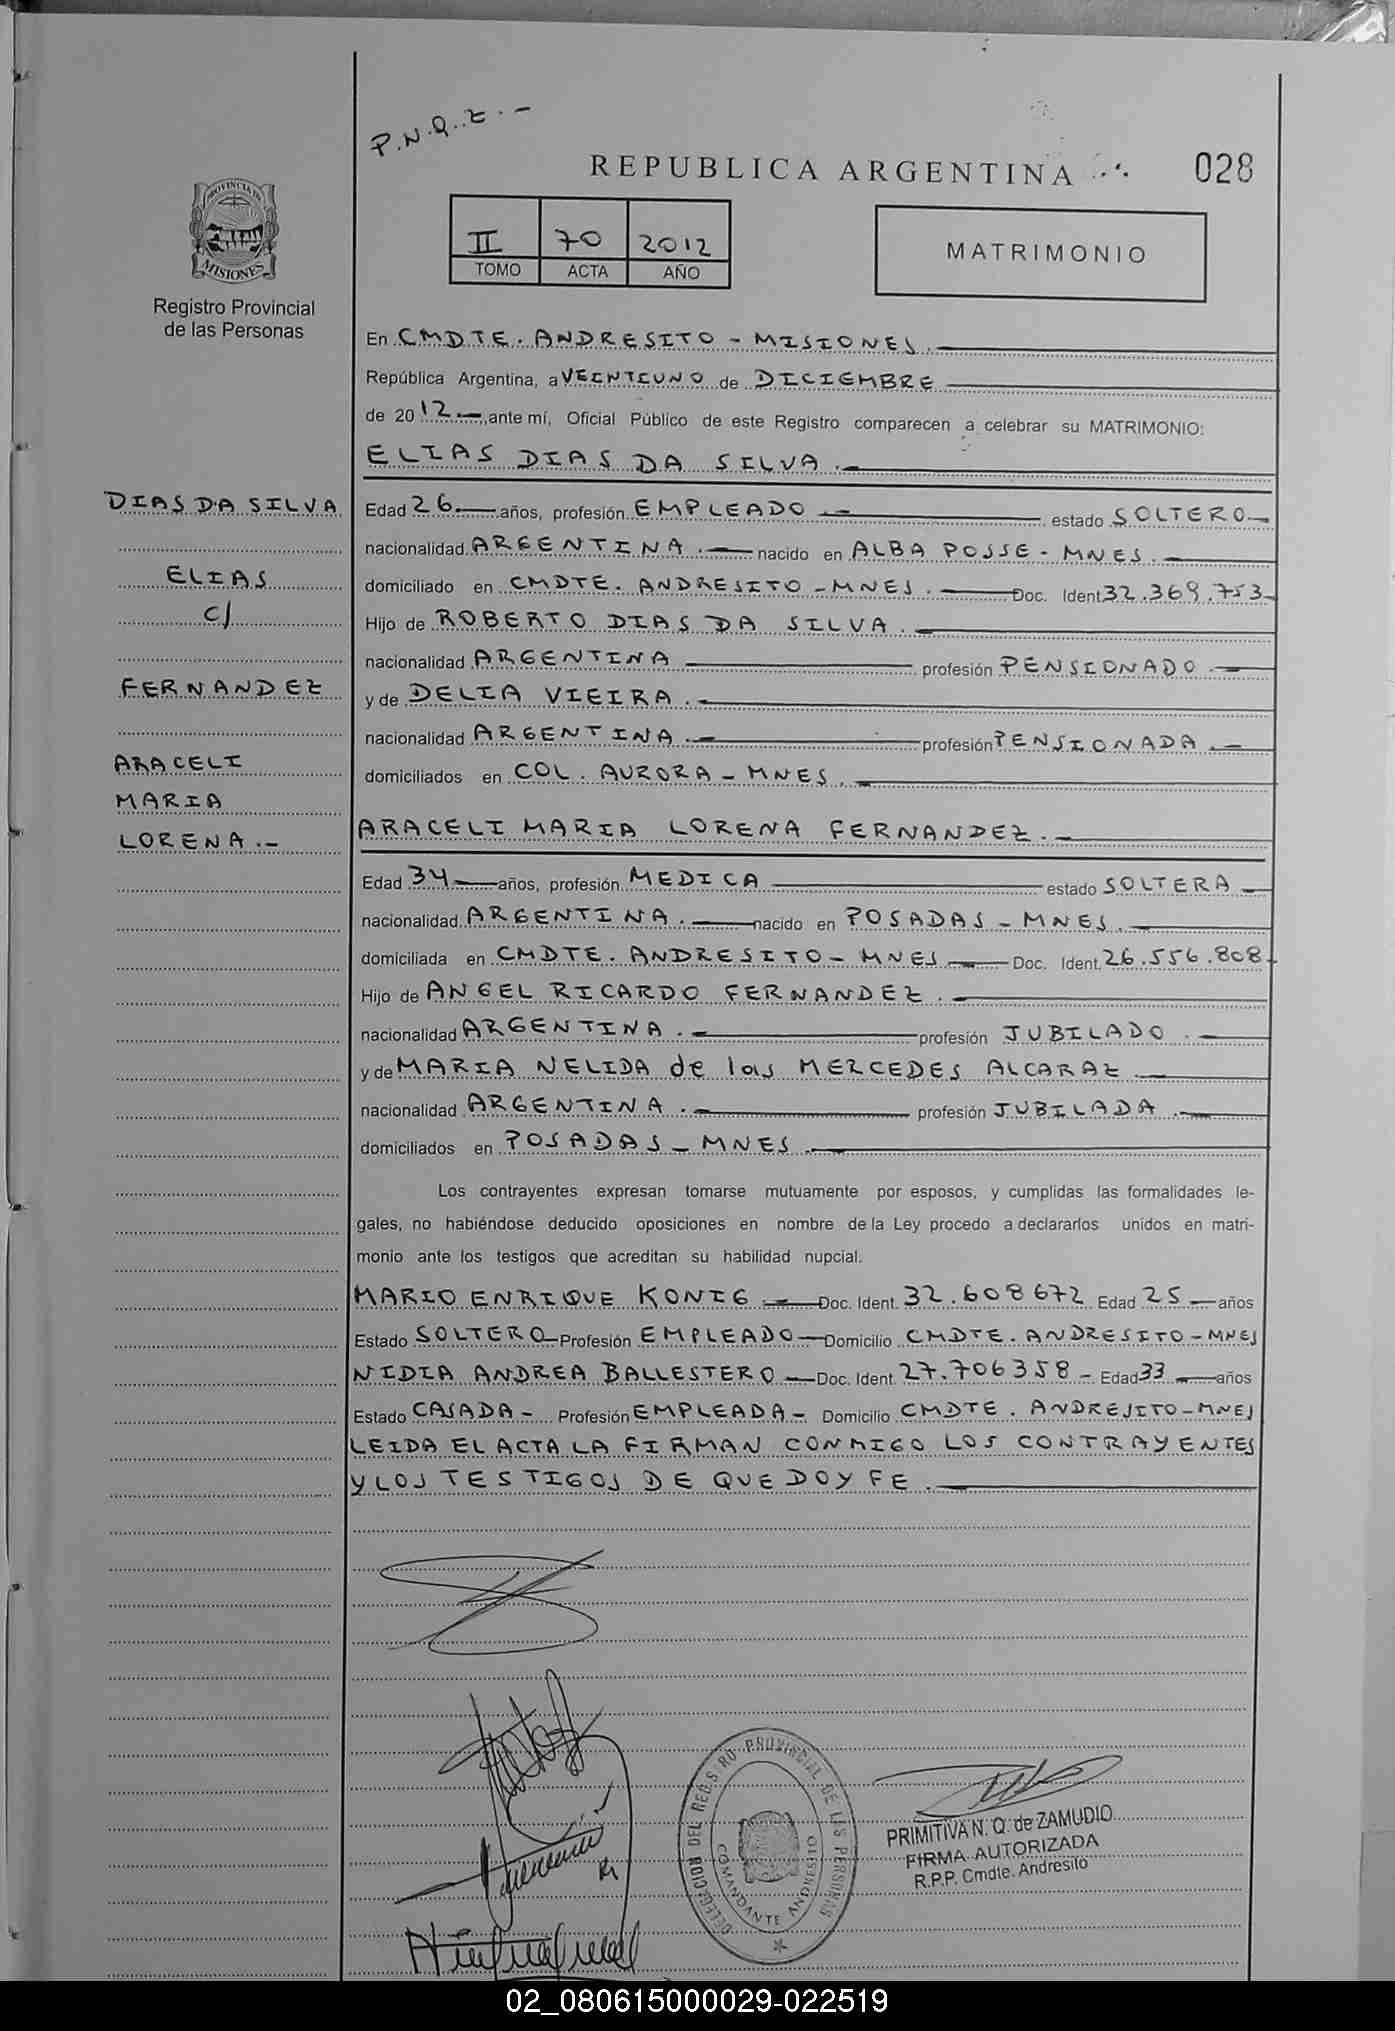 P.N.Q.Z.-
REPUBLICA ARGENTINA
028
PROVINCIA DE
MISIONES
II 70 2012
TOMO ACTA AÑO
MATRIMONIO
Registro Provincial
de las Personas
En CMDTE. ANDRESITO - MISIONES.
República Argentina, a VEINTIUNO de DICIEMBRE
de 20 12.-, ante mí, Oficial Público de este Registro comparecen a celebrar su MATRIMONIO:
ELIAS DIAS DA SILVA.-
DIAS DA SILVA
ELIAS
c/
FERNANDEZ
ARACELI
MARIA
LORENA.-
Edad 26 años, profesión EMPLEADO.- estado SOLTERO-
nacionalidad ARGENTINA.- nacido en ALBA POSSE - MNES.-
domiciliado en CMDTE. ANDRESITO - MNES.- Doc. Ident. 32.369.753-
Hijo de ROBERTO DIAS DA SILVA.-
nacionalidad ARGENTINA profesión PENSIONADO.-
y de DELIA VIEIRA.-
nacionalidad ARGENTINA.- profesión PENSIONADA.-
domiciliados en COL. AURORA - MNES.-
ARACELI MARIA LORENA FERNANDEZ.-
Edad 34 años, profesión MEDICA estado SOLTERA-
nacionalidad ARGENTINA.- nacido en POSADAS - MNES.-
domiciliada en CMDTE. ANDRESITO - MNES Doc. Ident. 26.556.808-
Hijo de ANGEL RICARDO FERNANDEZ.-
nacionalidad ARGENTINA.- profesión JUBILADO.-
y de MARIA NELIDA de las MERCEDES ALCARAZ.-
nacionalidad ARGENTINA.- profesión JUBILADA.-
domiciliados en POSADAS - MNES.-
Los contrayentes expresan tomarse mutuamente por esposos, y cumplidas las formalidades le-
gales, no habiéndose deducido oposiciones en nombre de la Ley procedo a declararlos unidos en matri-
monio ante los testigos que acreditan su habilidad nupcial.
MARIO ENRIQUE KONIG.- Doc. Ident. 32.608672 Edad 25 años
Estado SOLTERO Profesión EMPLEADO Domicilio CMDTE. ANDRESITO - MNES
NIDIA ANDREA BALLESTERO Doc. Ident. 27.706358- Edad 33 años
Estado CASADA- Profesión EMPLEADA- Domicilio CMDTE. ANDRESITO - MNES
LEIDA EL ACTA LA FIRMAN CONMIGO LOS CONTRAYENTES
Y LOS TESTIGOS DE QUE DOY FE.-
DELEGACION DEL REGISTRO PROVINCIAL DE LAS PERSONAS
COMANDANTE ANDRESITO
PRIMITIVA N. Q. de ZAMUDIO
FIRMA AUTORIZADA
R.P.P. Cmdte. Andresito
02_080615000029-022519